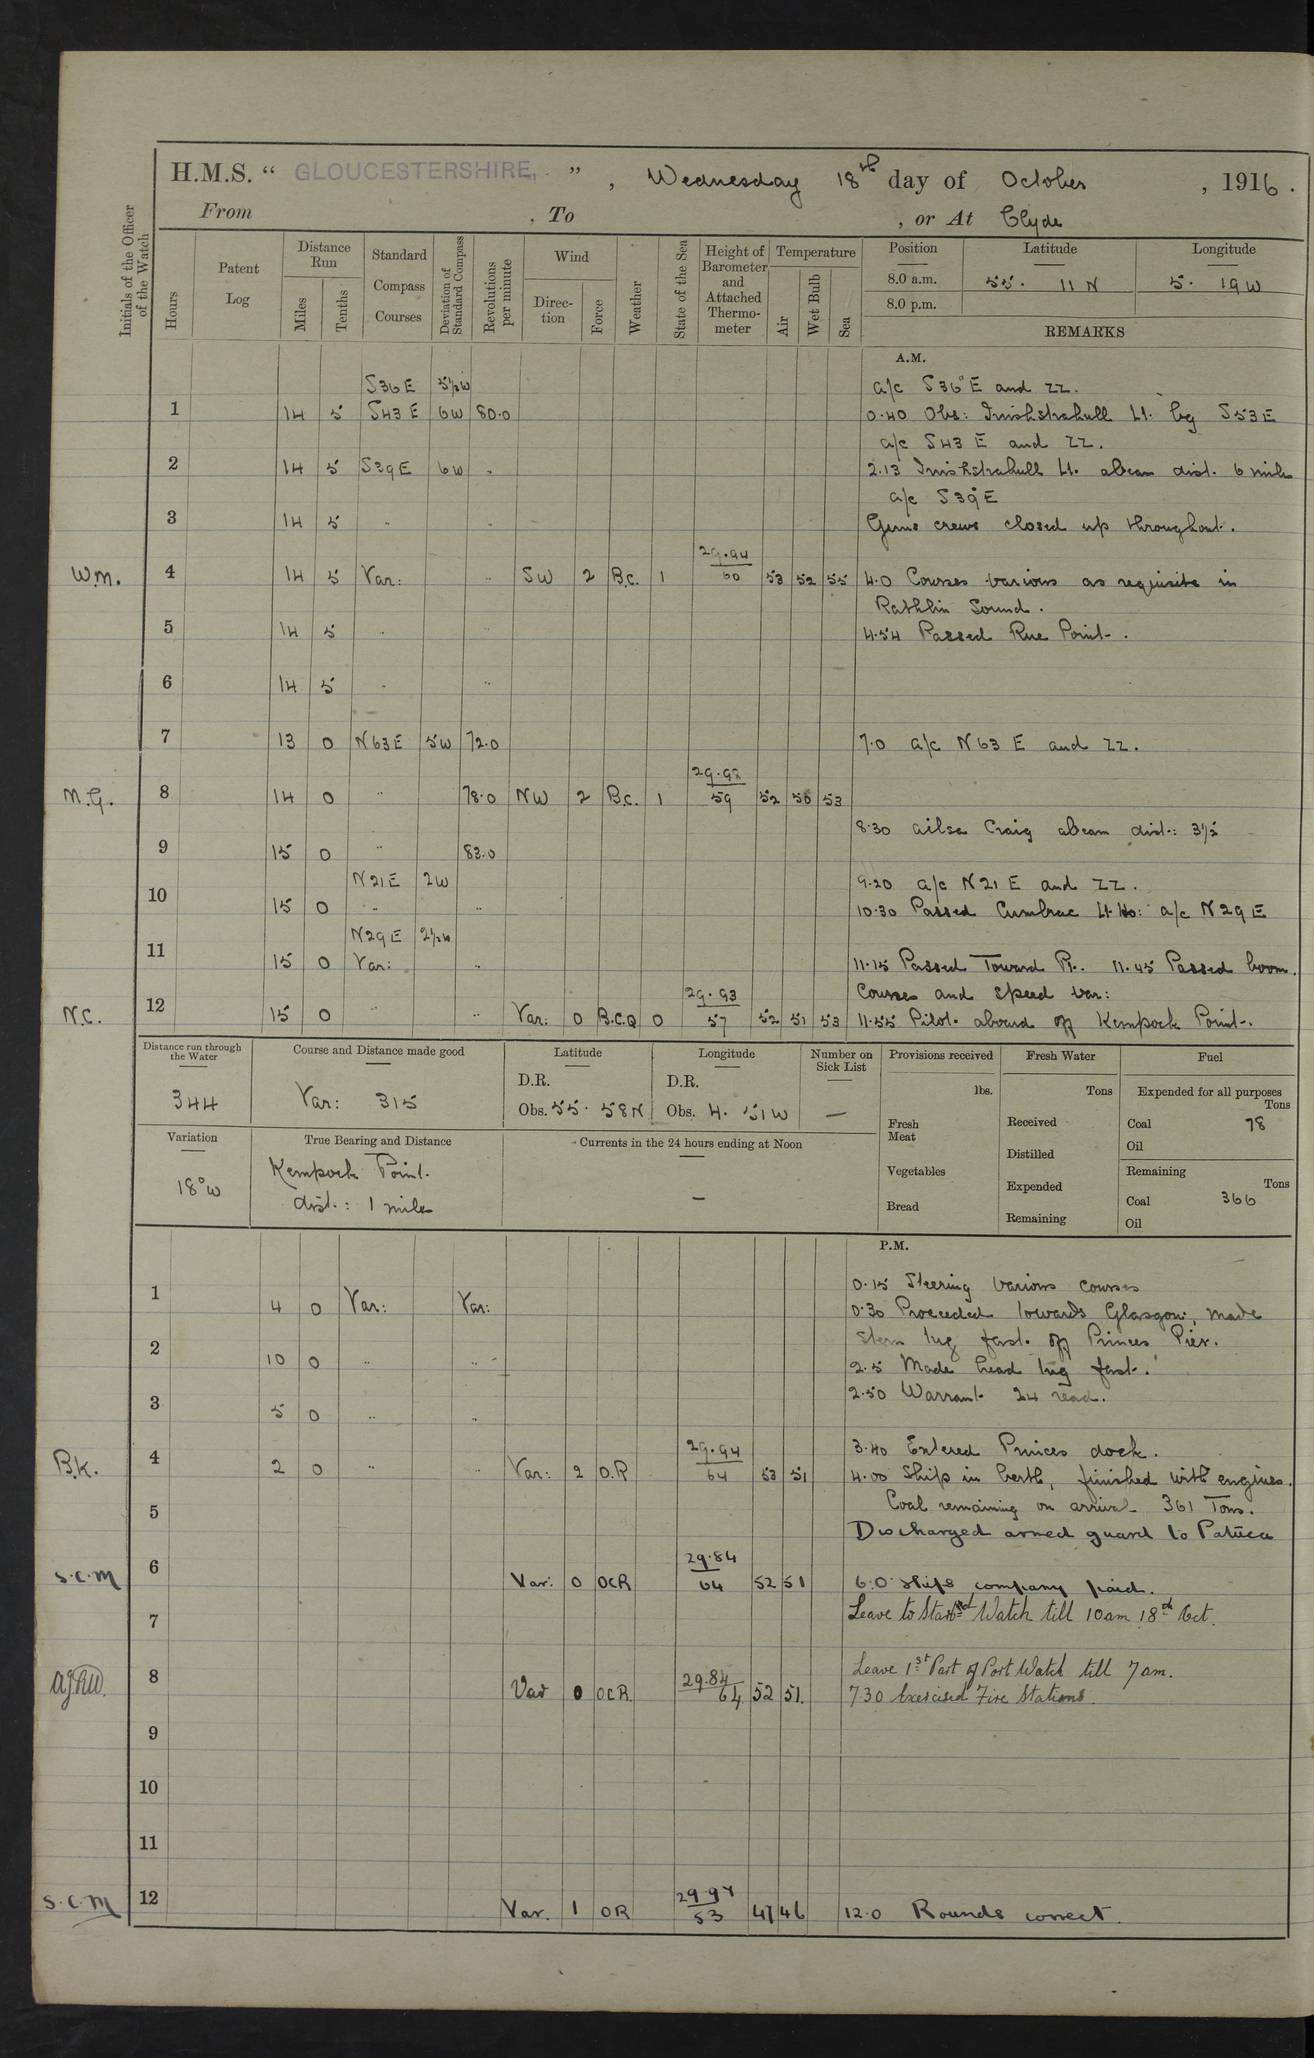 H.M.S. “ GLOUCESTERSHIRE, ” , Wednesday 18th day of October , 1916 .
From , To , or At Clyde
Initials of the Officer of the Watch
Hours
Patent Log
Distance Run
Miles
Tenths
Standard Compass Courses
Deviation of Standard Compass
Revolutions per minute
Wind
Direc-tion
Force
Weather
State of the Sea
Height of Barometer and Attached Thermo-meter
Temperature
Air
Wet Bulb
Sea
Position Latitude Longitude
8.0 a.m. 55. 11 N 5. 19 W
8.0 p.m.
REMARKS
A.M.
S36E 5½W a/c S36°E and ZZ.
1 14 5 S43E 6W 80.0 0.40 Obs: Inishtrahull Lt. bg S53E
a/c S43E and ZZ.
2 14 5 S39E 6W " 2.13 Inishtrahull Lt. abeam dist. 6 miles
a/c S39°E
3 14 5 " " Guns crews closed up throughout.
29.94
W.M. 4 14 5 Var: " SW 2 B.C. 1 60 53 52 55 4.0 Courses various as requisite in
Rathlin Sound.
5 14 5 " " 4.54 Passed Rue Point.
6 14 5 " "
7 13 0 N63E 5W 72.0 7.0 a/c N63E and ZZ.
29.92
M.G. 8 14 0 " 78.0 NW 2 B.C. 1 59 52 50 53
8.30 Ailsa Craig abeam dist: 3½
9 15 0 " 83.0
N21E 2W 9.20 a/c N21E and ZZ.
10 15 0 " " 10.30 Passed Cumbrae Lt. Ho: a/c N29E
N29E 2½W
11 15 0 Var: " 11.15 Passed Toward Pt. 11.45 Passed boom.
29.93 Courses and speed var:
N.C. 12 15 0 " " Var: 0 B.C.Q 0 57 52 51 53 11.55 Pilot aboard off Kempock Point.
Distance run through the Water
344
Course and Distance made good
Var: 315
Latitude
D.R.
Obs. 55. 58N
Longitude
D.R.
Obs. 4. 51W
Number on Sick List
—
Provisions received
lbs.
Fresh Meat
Vegetables
Bread
Fresh Water
Tons
Received
Distilled
Expended
Remaining
Fuel
Expended for all purposes
Tons
Coal 78
Oil
Remaining
Tons
Coal 366
Oil
Variation
18°W
True Bearing and Distance
Kempock Point.
dist.: 1 mile
Currents in the 24 hours ending at Noon
—
P.M.
0.15 Steering various courses
1 4 0 Var: Var: 0.30 Proceeded towards Glasgow, made
stern tug fast off Princes Pier.
2 10 0 " " 2.5 Made head tug fast.
2.50 Warrant 24 read.
3 5 0 " "
29.94 3.40 Entered Princes dock.
B.K. 4 2 0 " " Var: 2 O.R 64 53 51 4.00 Ship in berth, finished with engines.
Coal remaining on arrival 361 Tons.
5 Discharged armed guard to Patuca
29.84
S.C.M 6 Var: 0 OCR 64 52 51 6.0 Ships company paid.
7 Leave to Starbd Watch till 10am 18th Oct.
Leave 1st Part of Port Watch till 7am.
8 Var 0 OCR. 29.84 64 52 51. 7 30 Exercised Fire Stations.
9
10
11
29.94
S.C.M 12 Var. 1 OR 53 47 46 12.0 Rounds correct.